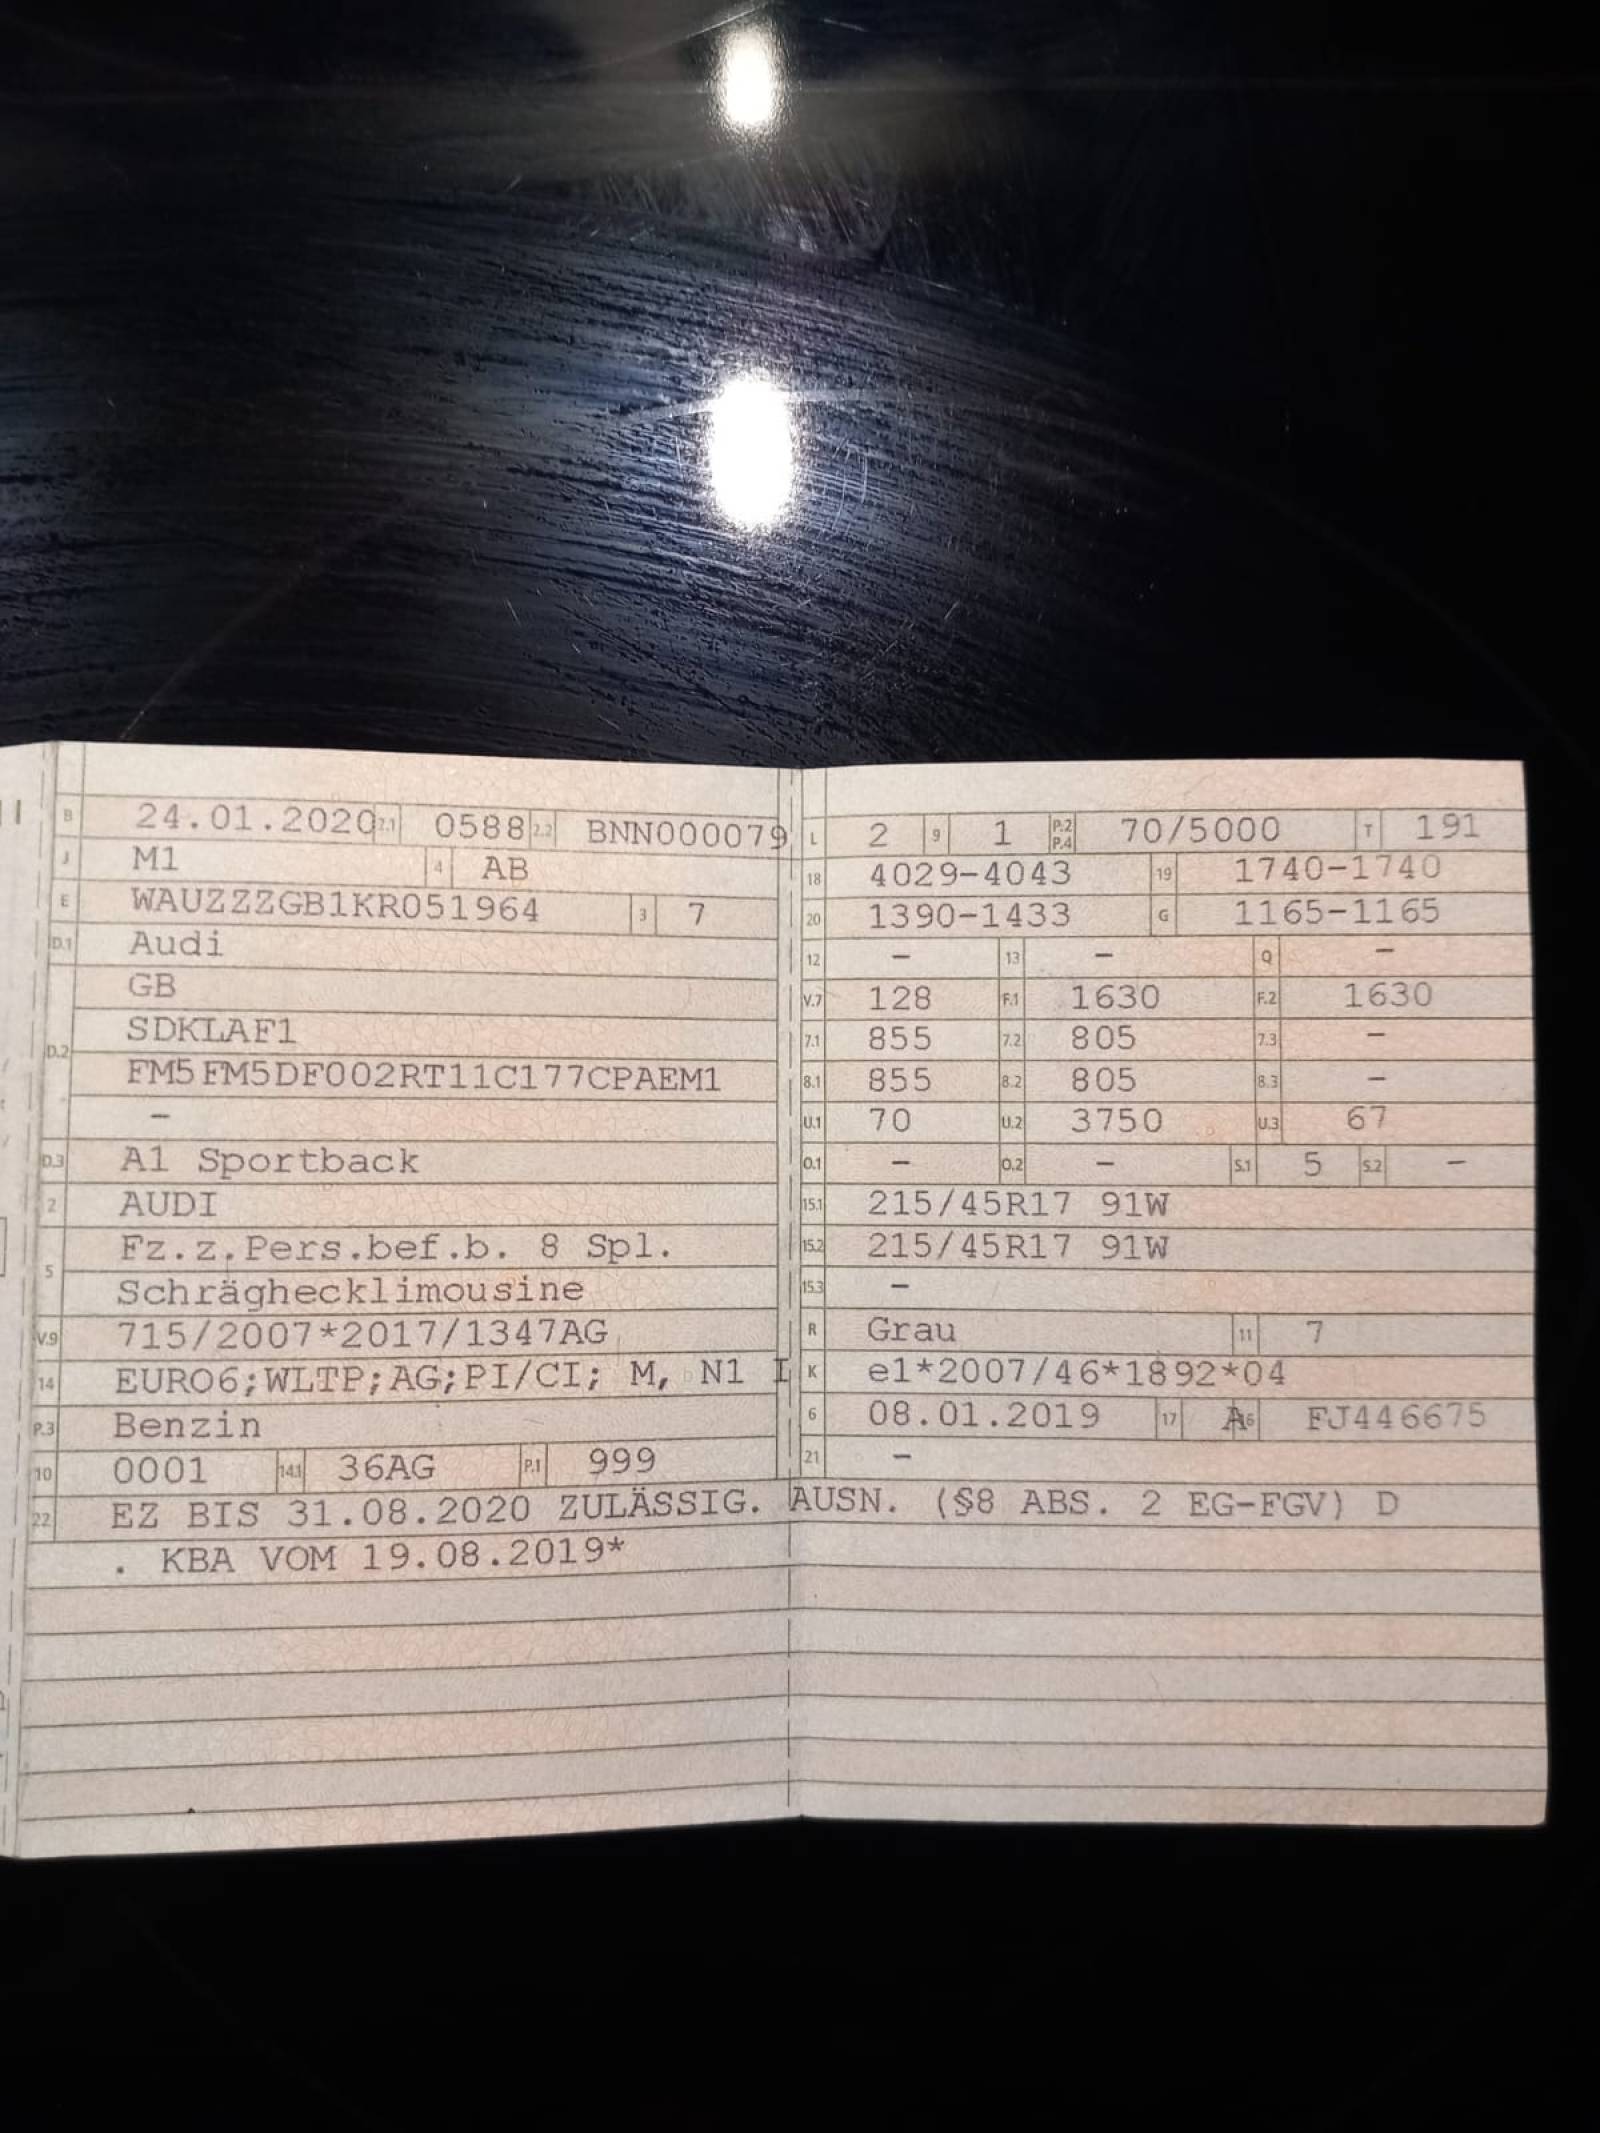 B 24.01.2020 2.1 0588 2.2 BNN000079
J M1 4 AB
E WAUZZZGB1KR051964 3 7
D.1 Audi
GB
D.2 SDKLAF1
FM5FM5DF002RT11C177CPAEM1
–
D.3 A1 Sportback
2 AUDI
5 Fz.z.Pers.bef.b. 8 Spl.
Schräghecklimousine
V.9 715/2007*2017/1347AG
14 EURO6;WLTP;AG;PI/CI; M, N1 I
P.3 Benzin
10 0001 14.1 36AG P.1 999
L 2 9 1 P.2 P.4 70/5000 T 191
18 4029-4043 19 1740-1740
20 1390-1433 G 1165-1165
12 – 13 – Q –
V.7 128 F.1 1630 F.2 1630
7.1 855 7.2 805 7.3 –
8.1 855 8.2 805 8.3 –
U.1 70 U.2 3750 U.3 67
O.1 – O.2 – S.1 5 S.2 –
15.1 215/45R17 91W
15.2 215/45R17 91W
15.3 –
R Grau 11 7
K e1*2007/46*1892*04
6 08.01.2019 17 A 16 FJ446675
21 –
22 EZ BIS 31.08.2020 ZULÄSSIG. AUSN. (§8 ABS. 2 EG-FGV) D
. KBA VOM 19.08.2019*